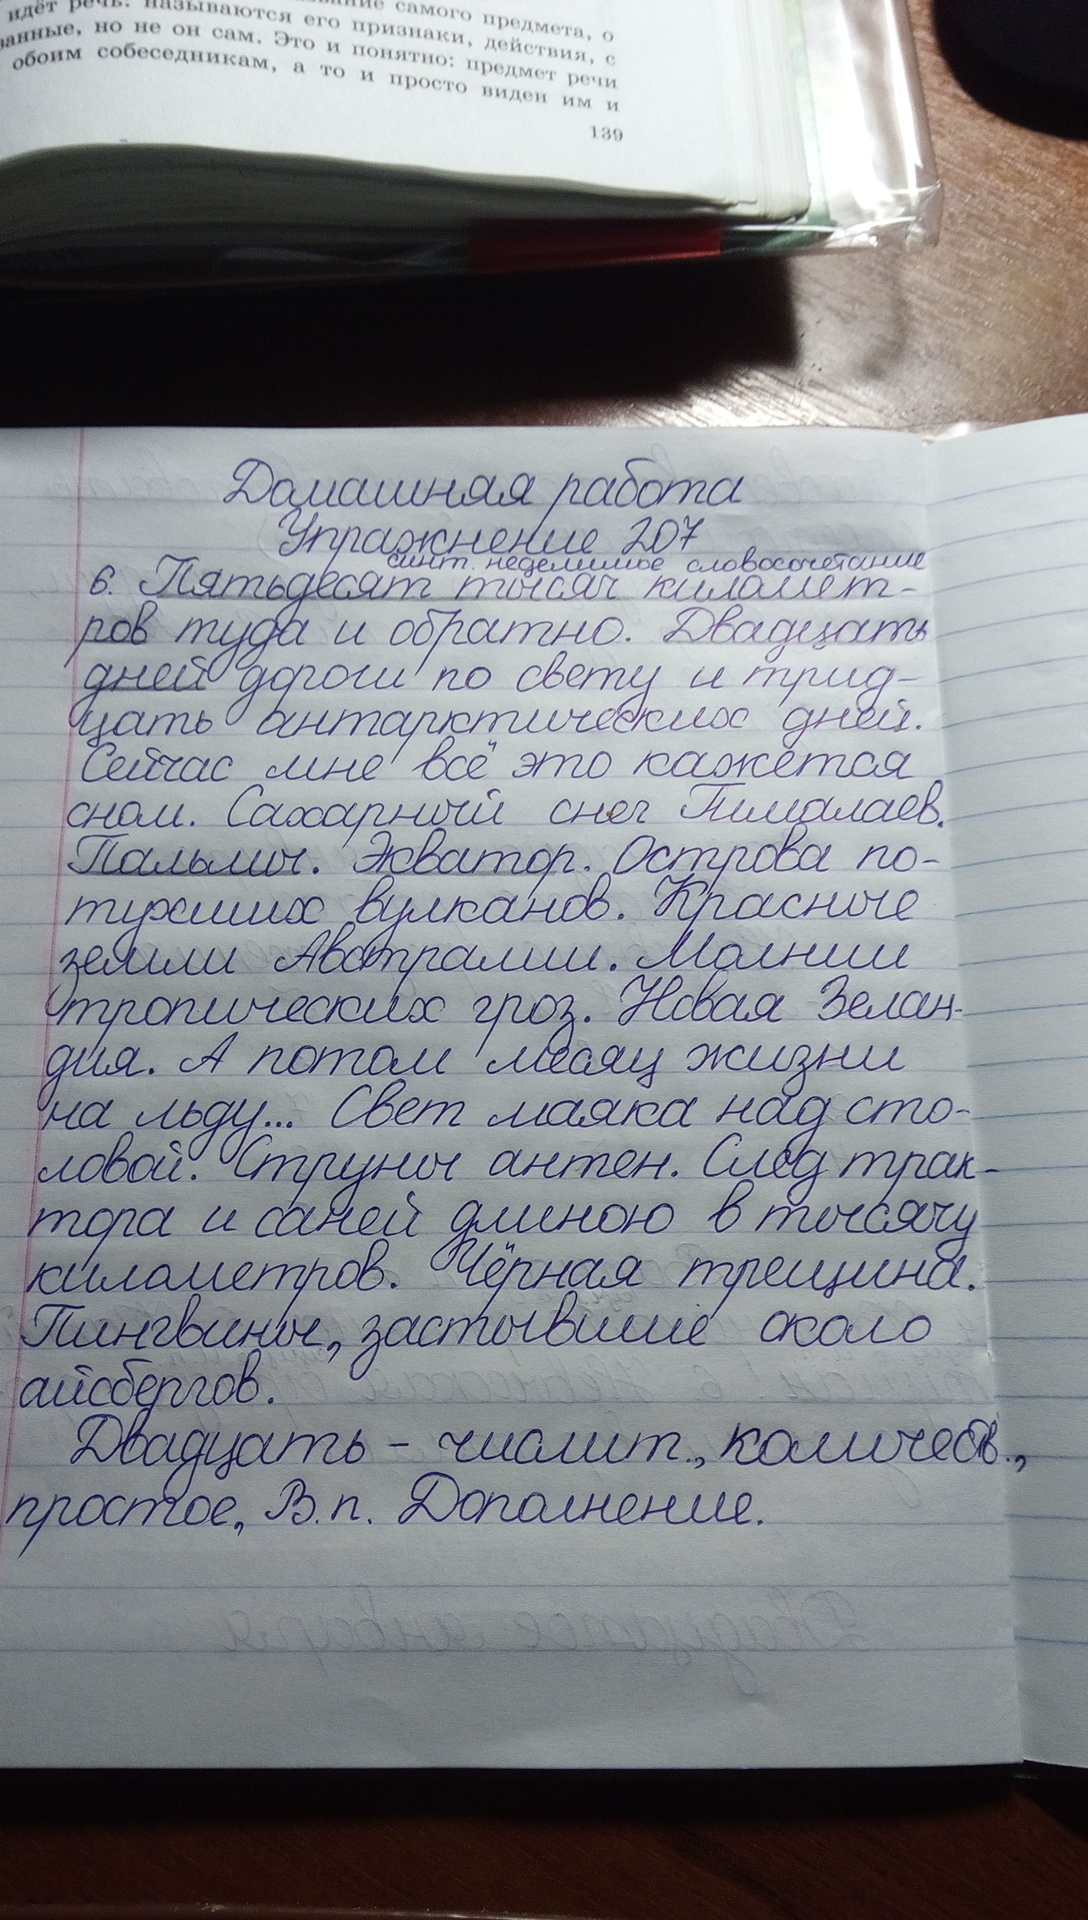 идёт речь: называются его признаки, действия, с
самого предмета, о
но не он сам. Это и понятно: предмет речи
обоим собеседникам, а то и просто виден им и
139
Домашняя работа
Упражнение 207
синт. неделимое словосочетание
6. Пятьдесят тысяч километ-
ров туда и обратно. Двадцать
дней дороги по свету и трид-
цать антарктических дней.
Сейчас мне всё это кажется
сном. Сахарный снег Гималаев.
Пальмы. Экватор. Острова по-
тухших вулканов. Красные
земли Австралии. Молнии
тропических гроз. Новая Зелан-
дия. А потом месяц жизни
на льду... Свет маяка над сто-
ловой. Струны антен. След трак-
тора и саней длиною в тысячу
километров. Чёрная трещина.
Пингвины, застывшие около
айсбергов.
Двадцать - числит., количеств.,
простое, В.п. Дополнение.